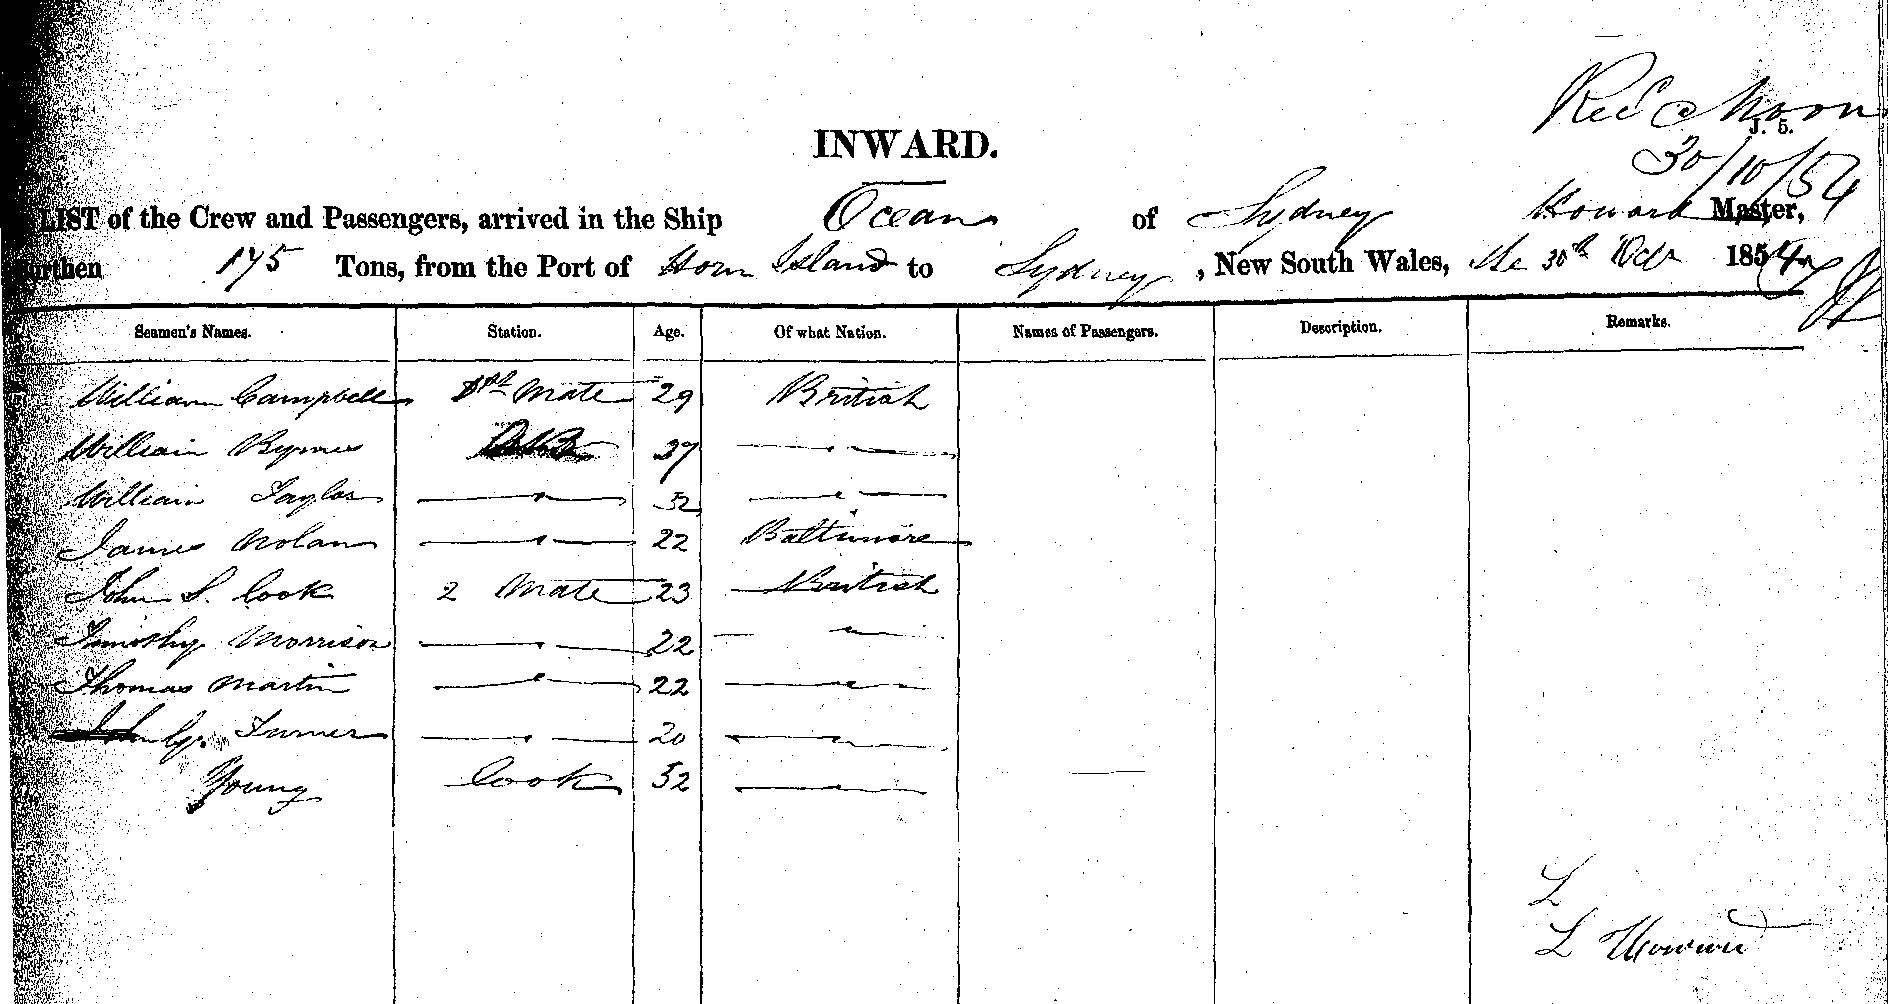 Recd Noon
J. 5.
30/10/54
INWARD.
LIST of the Crew and Passengers, arrived in the Ship Ocean of Sydney Howard Master,
Burthen 175 Tons, from the Port of Horn Island to Sydney, New South Wales, the 30th Octr 1854
Seamen's Names. Station. Age. Of what Nation. Names of Passengers. Description. Remarks.
William Campbell 1st Mate 29 British
William Byrnes A.B. 27 — " —
William Taylor — " — 32 — " —
James Nolan — " — 22 Baltimore
John S. Cook 2 Mate 23 British
Timothy Morrison — " — 22 — " —
Thomas Martin — " — 22 — " —
John Gr. Turner — " — 20 — " —
Young Cook 52 — " —
L
L Howard